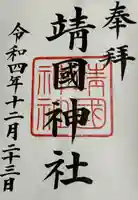 奉拝
靖國神社
令和四年十二月二十三日
靖國神社